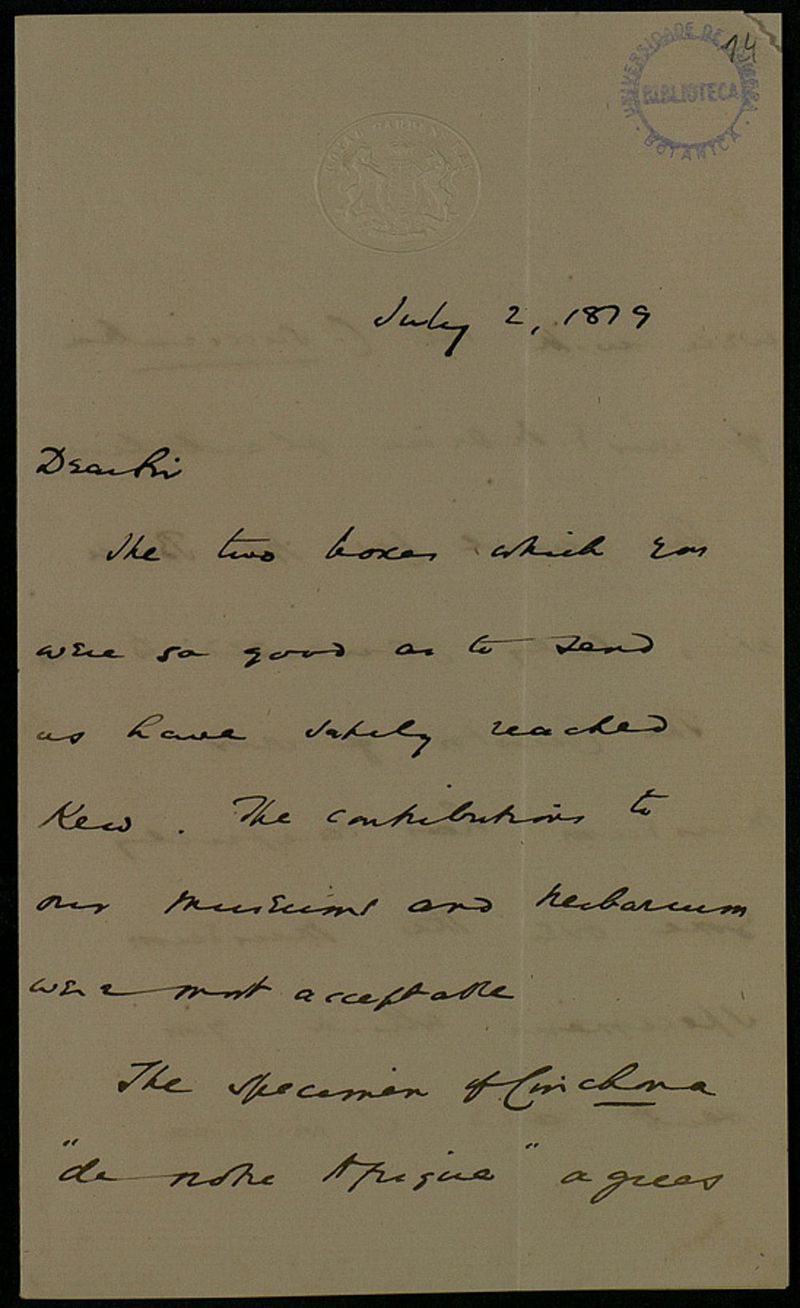 14
UNIVERSIDADE DE COIMBRA
BIBLIOTECA
BOTANICA
ROYAL GARDENS KEW
July 2, 1879
Dear Sir
The two boxes which you
were so good as to send
us have safely reached
Kew. The contributions to
our museums and herbarium
were most acceptable
The specimen of Cinchona
"de notre Afrique" agrees